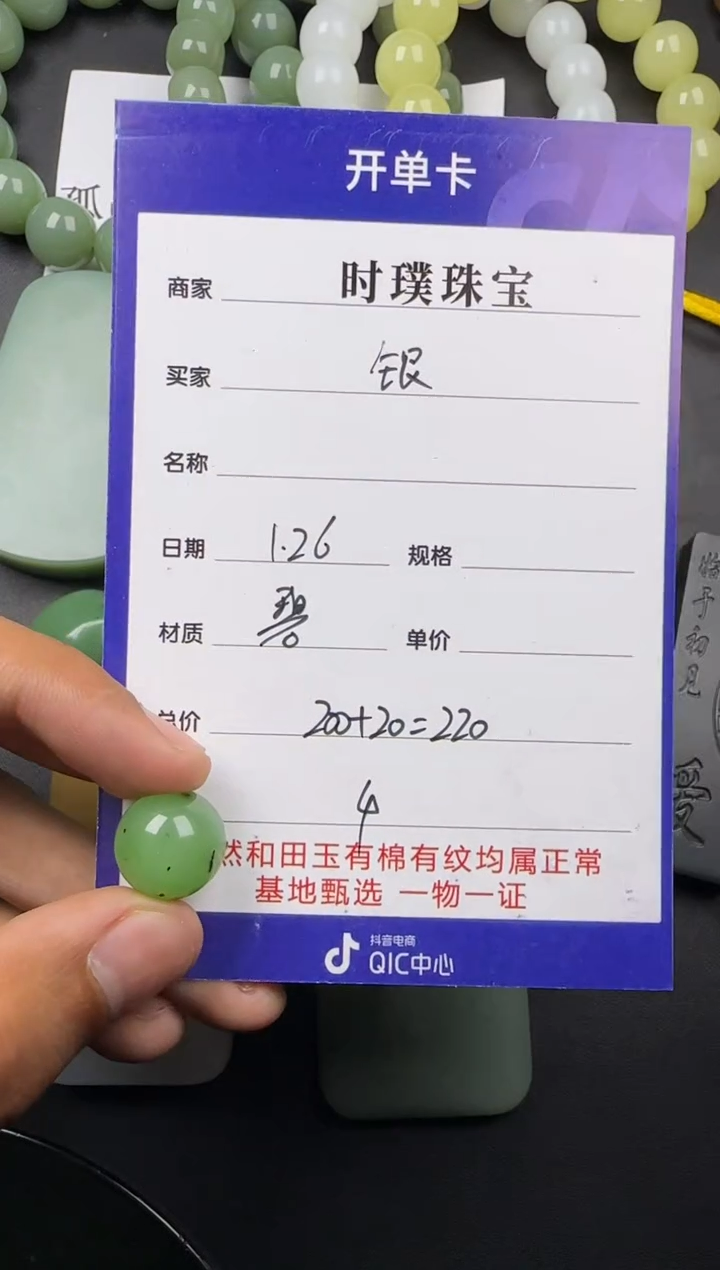 孤
开单卡
商家 时璞珠宝
买家 银
名称
日期 1.26 规格
材质 碧 单价
总价 200+20=220
4
然和田玉有棉有纹均属正常
基地甄选 一物一证
抖音电商
QIC中心
于初见
受